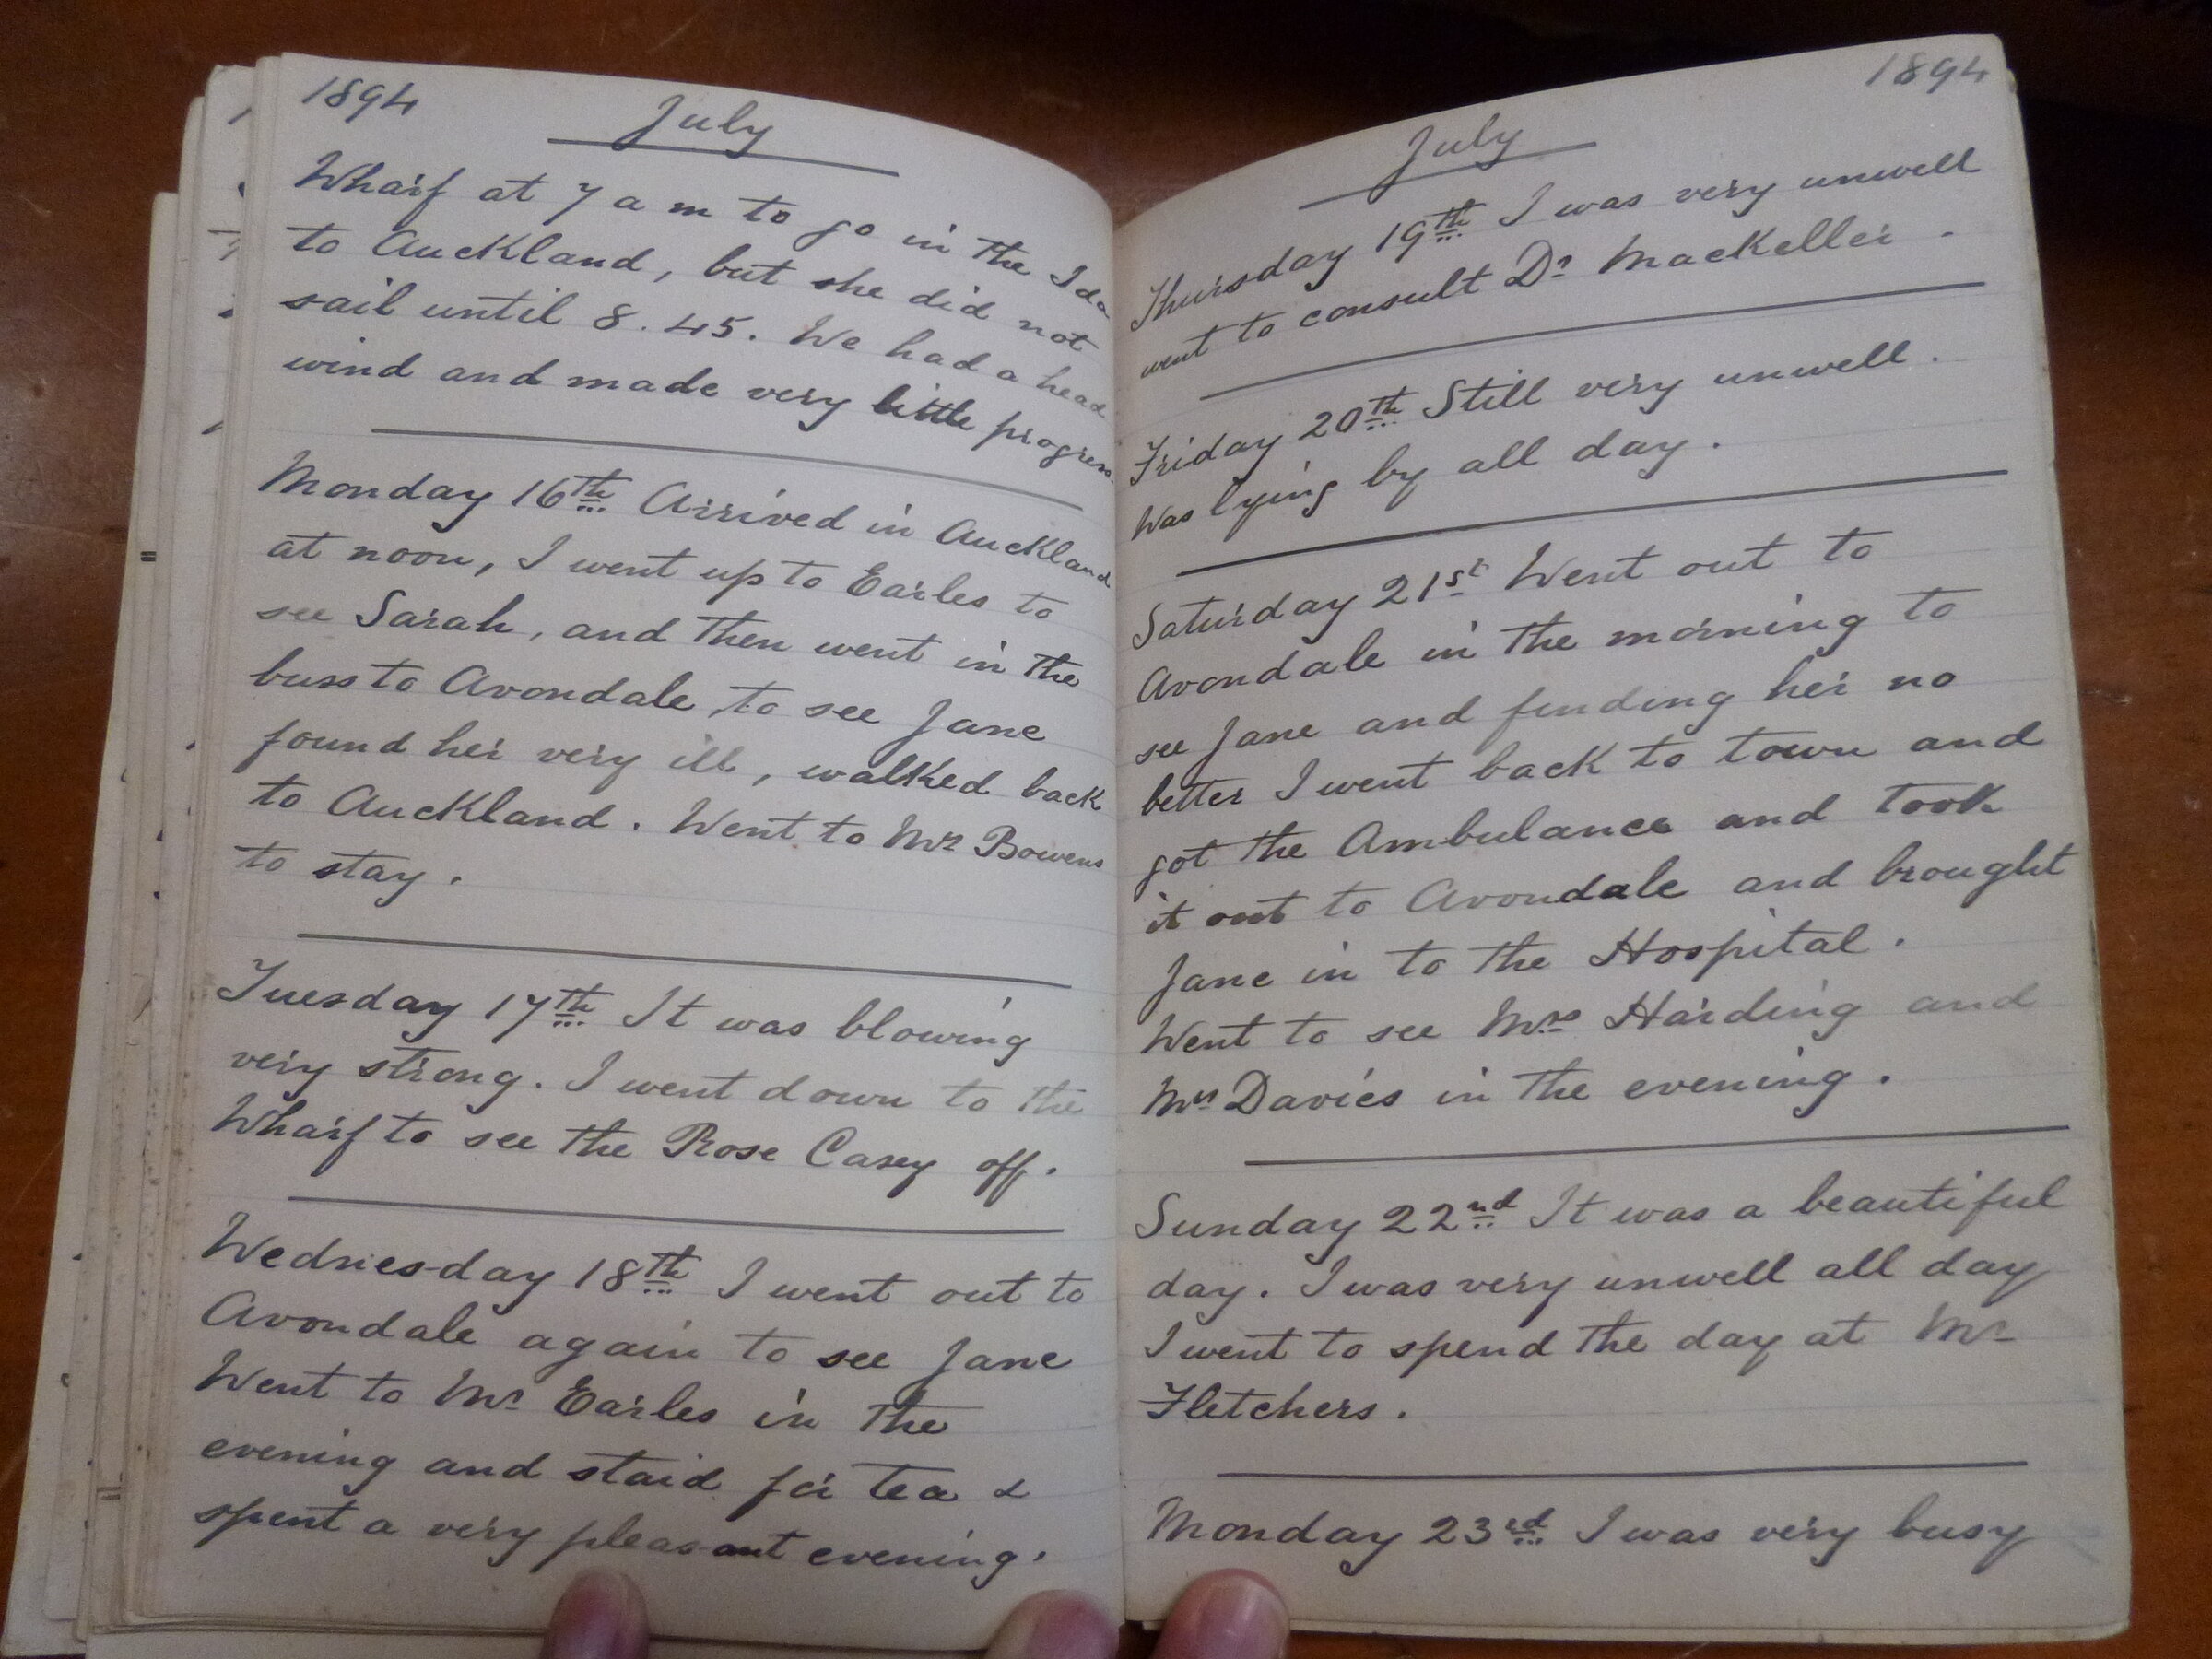 1894
July
Wharf at 7 a m to go in the Ida
to Auckland, but she did not
sail until 8.45. We had a head
wind and made very little progress.
Monday 16th Arrived in Auckland
at noon, I went up to Earles to
see Sarah, and then went in the
buss to Avondale, to see Jane
found her very ill, walked back
to Auckland. Went to Mr Bowens
to stay.
Tuesday 17th It was blowing
very strong. I went down to the
Wharf to see the Rose Casey off.
Wednesday 18th I went out to
Avondale again to see Jane
Went to Mr Earles in the
evening and staid for tea &
spent a very pleasant evening.
1894
July
Thursday 19th I was very unwell
went to consult Dr MacKeller.
Friday 20th Still very unwell.
Was lying by all day.
Saturday 21st Went out to
Avondale in the morning to
see Jane and finding her no
better I went back to town and
got the Ambulance and took
it out to Avondale and brought
Jane in to the Hospital.
Went to see Mrs Harding and
Mrs Davies in the evening.
Sunday 22nd It was a beautiful
day. I was very unwell all day
I went to spend the day at Mr
Fletchers.
Monday 23rd I was very busy